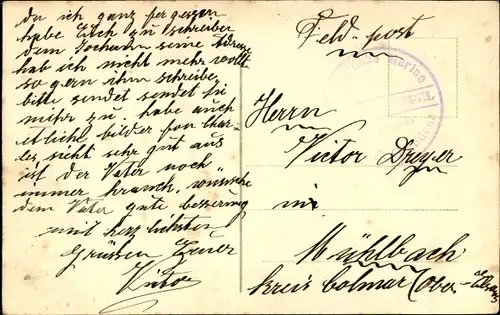 da ich ganz fergessen
habe Euch zu schreiben
dem Johann seine Adresse
hab ich nicht mehr wollt
so gern ihm schreiben
bitte sendet sendet Si
mihr zu. habe auch
etliche bilder fon Char-
les, sicht sehr gut aus
ist der Vater noch
immer krank, wünsche
dem Vater gute besserung
mit herzlichsten
Grüssen Euer
Victor
Feld. post
Herrn
Victor Dreyer
in
Mühlbach
kreis Colmar (Ober-Elsass